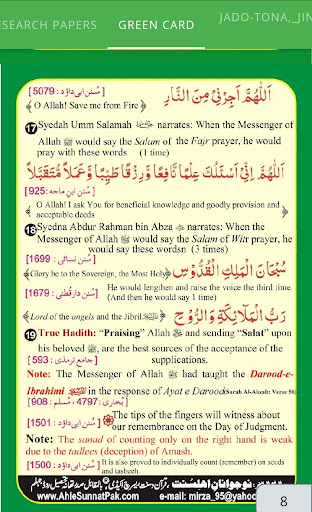 ESEARCH PAPERS GREEN CARD JADO-TONA,_JIN
[سُنن ابی داؤد : 5079] اَللّٰهُمَّ اَجِرْنِيْ مِنَ النَّارِ
﴾ O Allah! Save me from Fire ﴿
17 Syedah Umm Salamah narrates: When the Messenger of
Allah ﷺ would say the Salam of the Fajr prayer, he would
pray with these words (1 time)
اَللّٰهُمَّ اِنِّيْ اَسْئَلُكَ عِلْمًا نَّافِعًا وَّرِزْقًا طَيِّبًا وَّعَمَلًا مُّتَقَبَّلًا
[سُنن ابنِ ماجه : 925]
﴾ O Allah! I ask You for beneficial knowledge and goodly provision and
acceptable deeds ﴿
18 Syedna Abdur Rahman bin Abza narrates: When the
Messenger of Allah ﷺ would say the Salam of Witr prayer, he
would say these wordsn (3 times)
[سُنن نسائی : 1699]
﴾Glory be to the Sovereign, the Most Holy﴿ سُبْحَانَ الْمَلِكِ الْقُدُّوْسِ
[سُنن دارقُطنی : 1679] He would lengthen and raise the voice the third time.
(And then he would say 1 time)
﴾Lord of the angels and the Jibril.﴿ رَبِّ الْمَلَآئِكَةِ وَالرُّوْحِ
19 True Hadith: “Praising” Allah and sending “Salat” upon
his beloved ﷺ, are the best sources of the acceptance of the
[جامع ترمذی : 593] supplications.
Note: The Messenger of Allah ﷺ had taught the Darood-e-
Ibrahimi in the response of Ayat e Darood (Surah Al-Ahzab: Verse 56)
[بُخاری : 4797 ، مُسلم : 908]
The tips of the fingers will witness about
[سُنن ابی داؤد : 1501] our remembrance on the Day of Judgment.
Note: The sanad of counting only on the right hand is weak
due to the tadlees (deception) of Amash.
[سُنن ابی داؤد : 1500] It is also proved to individually count (remember) on seeds
and tasbeeh.
نوجوانانِ اهلسُنت
www.AhleSunnatPak.com e-mail: mirza_95@yahoo
8